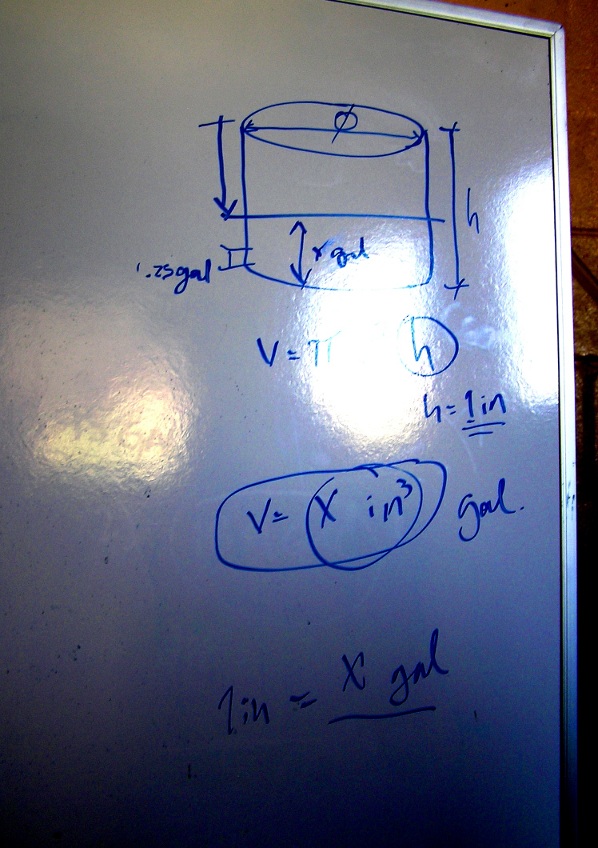 Ø
h
x gal
.25gal
V = π h
h = 1 in
V = X in³ gal.
1 in = X gal